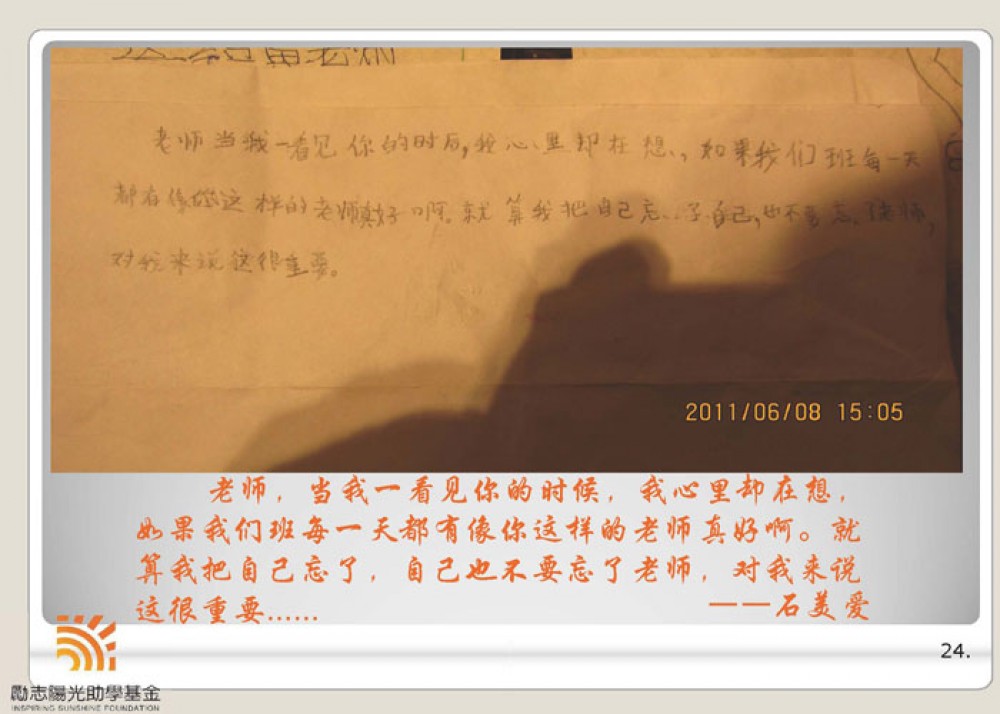 老师当我一看见你的时后,我心里却在想,如果我们班每一天
都有像您这样的老师真好啊。就算我把自己忘了自己,也不要忘了老师,
对我来说这很重要。
2011/06/08 15:05
老师，当我一看见你的时候，我心里却在想，
如果我们班每一天都有像你这样的老师真好啊。就
算我把自己忘了，自己也不要忘了老师，对我来说
这很重要......
——石美爱
24.
勵志陽光助學基金
INSPIRING SUNSHINE FOUNDATION